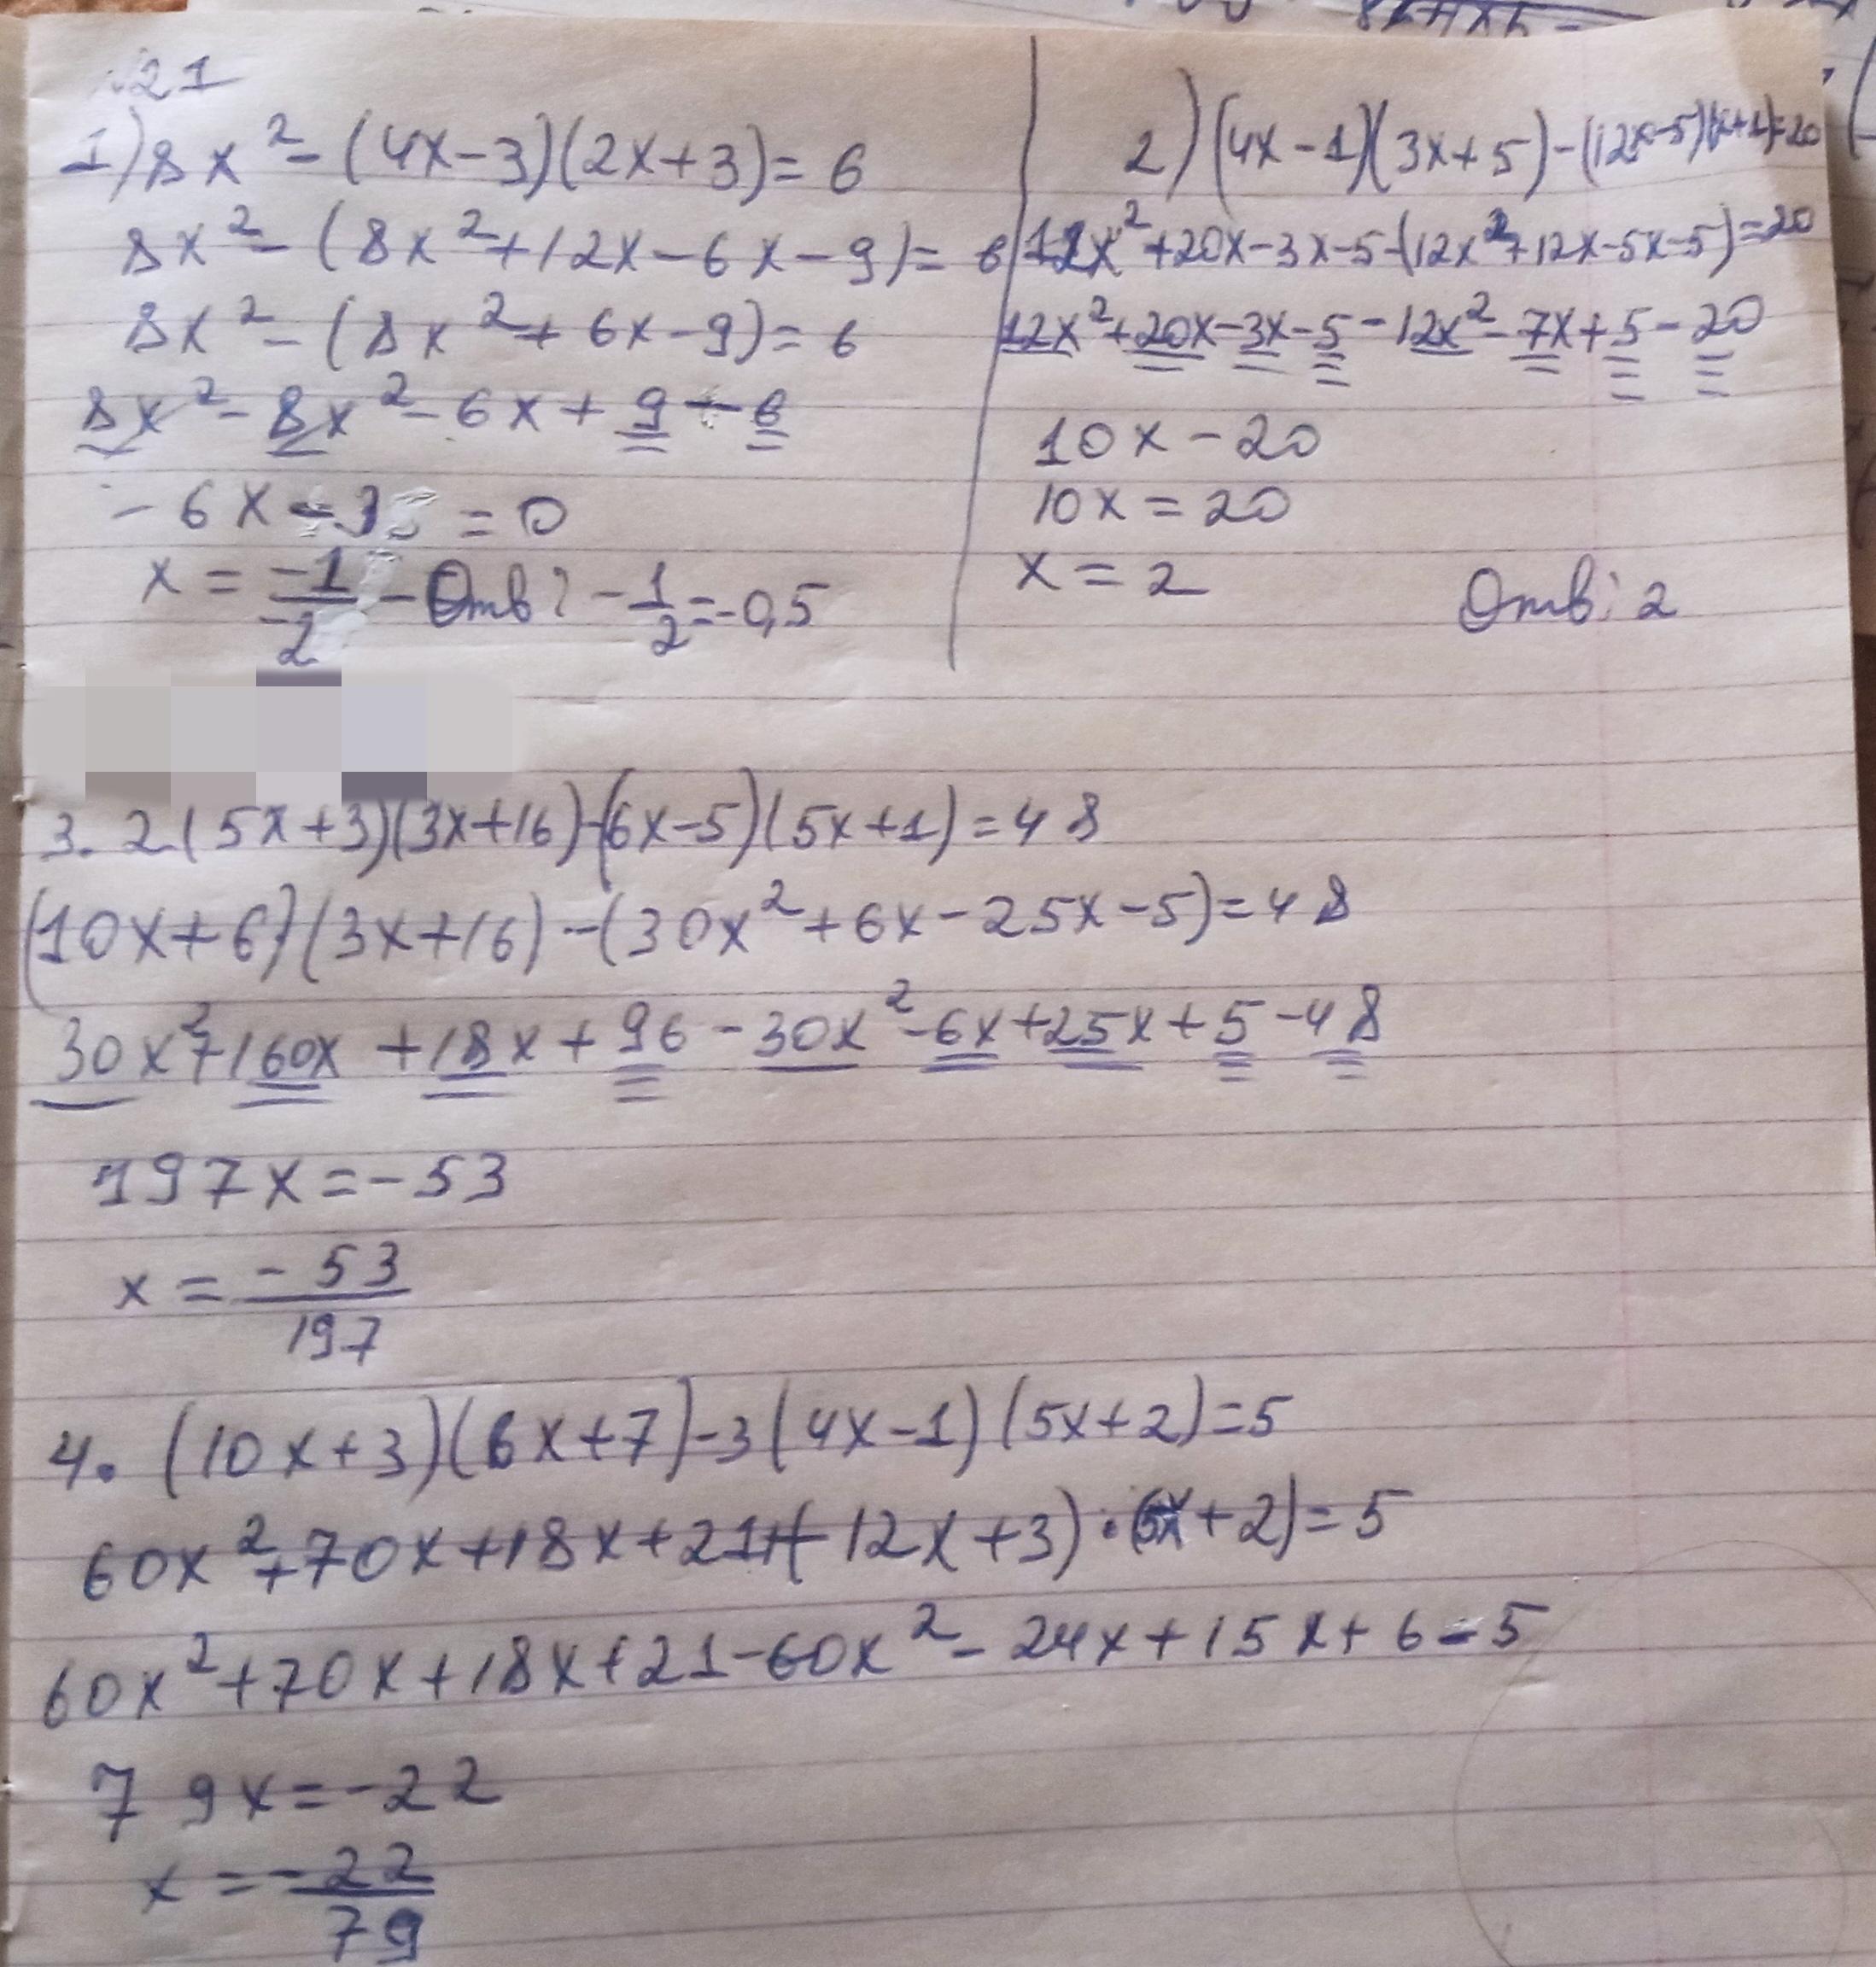 21
1) 8x² - (4x-3)(2x+3) = 6
8x² - (8x² + 12x - 6x - 9) = 6
8x² - (8x² + 6x - 9) = 6
8x² - 8x² - 6x + 9 - 6
- 6x - 3 = 0
x = -1/-2 - Отв: - 1/2 = -0,5
2) (4x-1)(3x+5) - (12x-5)(x+1) = 20
12x² + 20x - 3x - 5 - (12x² + 12x - 5x - 5) = 20
12x² + 20x - 3x - 5 - 12x² - 7x + 5 - 20
10x - 20
10x = 20
x = 2
Отв: 2
3. 2(5x+3)(3x+16) - (6x-5)(5x+1) = 48
(10x+6)(3x+16) - (30x² + 6x - 25x - 5) = 48
30x² + 160x + 18x + 96 - 30x² - 6x + 25x + 5 - 48
197x = -53
x = -53/197
4. (10x+3)(6x+7) - 3(4x-1)(5x+2) = 5
60x² + 70x + 18x + 21 + (-12x+3)·(5x+2) = 5
60x² + 70x + 18x + 21 - 60x² - 24x + 15x + 6 - 5
79x = -22
x = -22/79